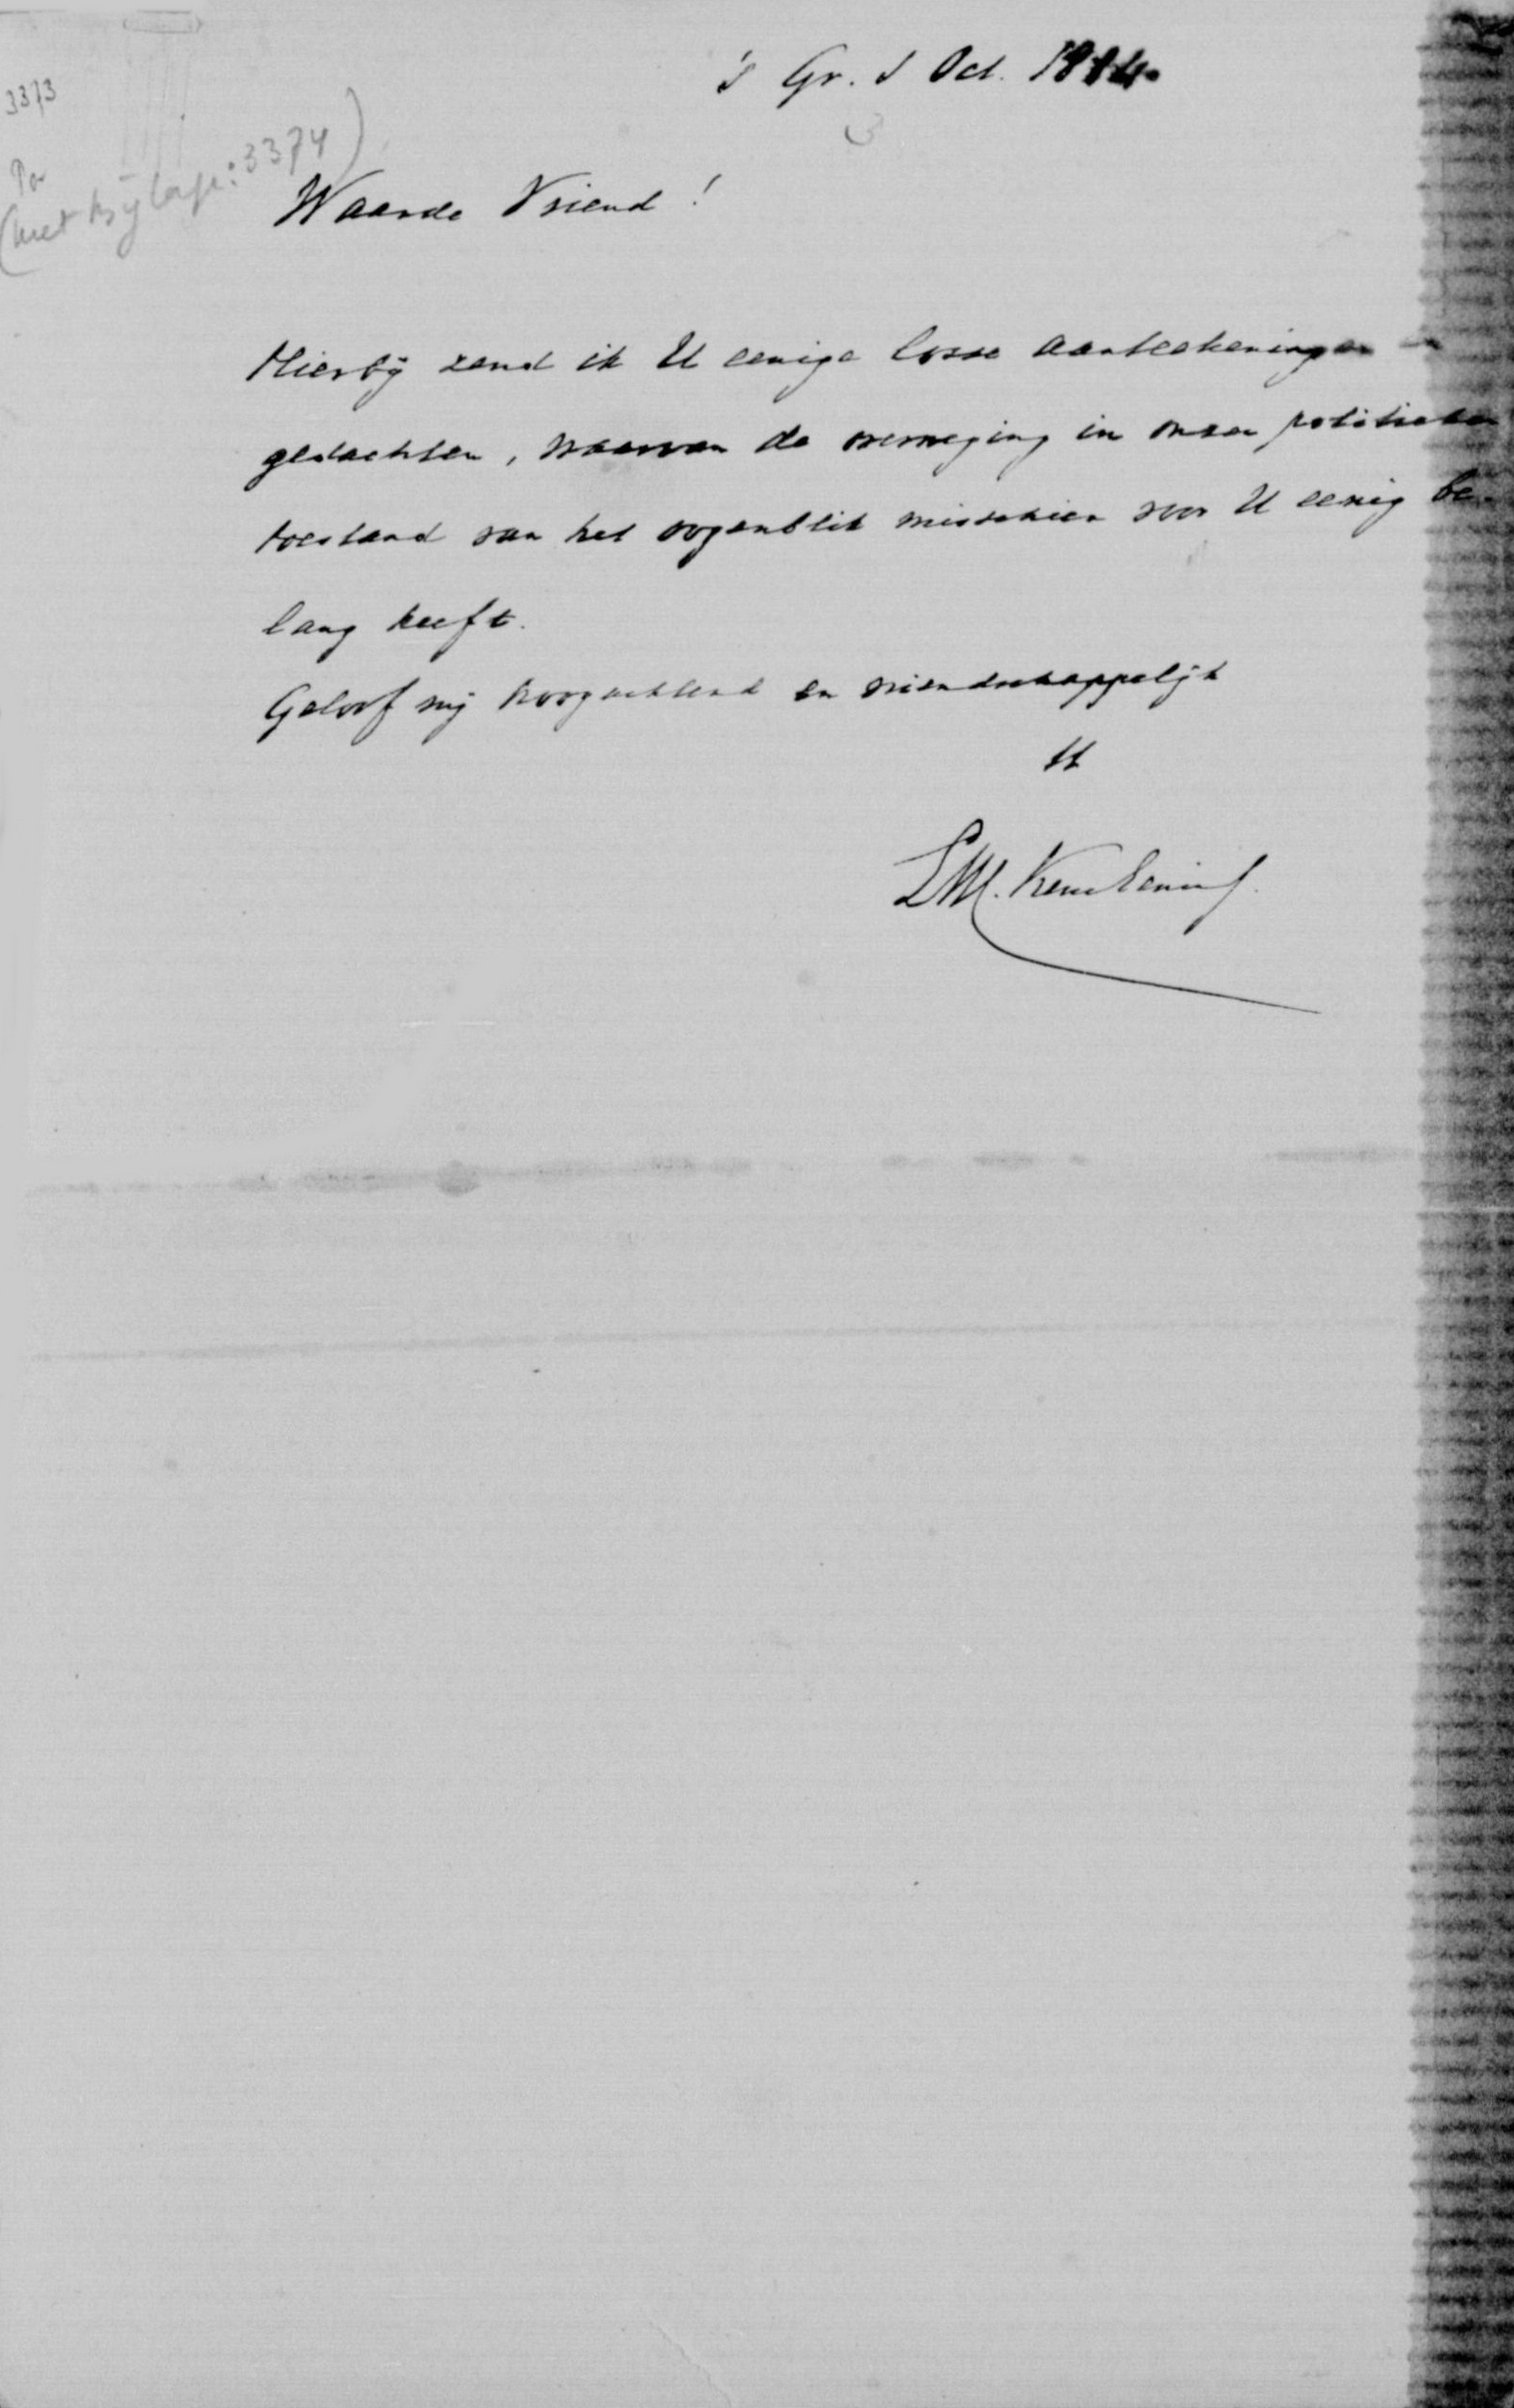 3373
's Gr. 1 Oct. 1884.
(met bijlage: 3374)
Waarde Vriend!
Hierbij zend ik U eenige losse aanteekeningen
gedachten, waarvan de overweging in onzen politieken
toestand van het oogenblik misschien voor U eenig be-
lang heeft.
Geloof mij hoogachtend en vriendschappelijk
U
L.W.C. Keuchenius.